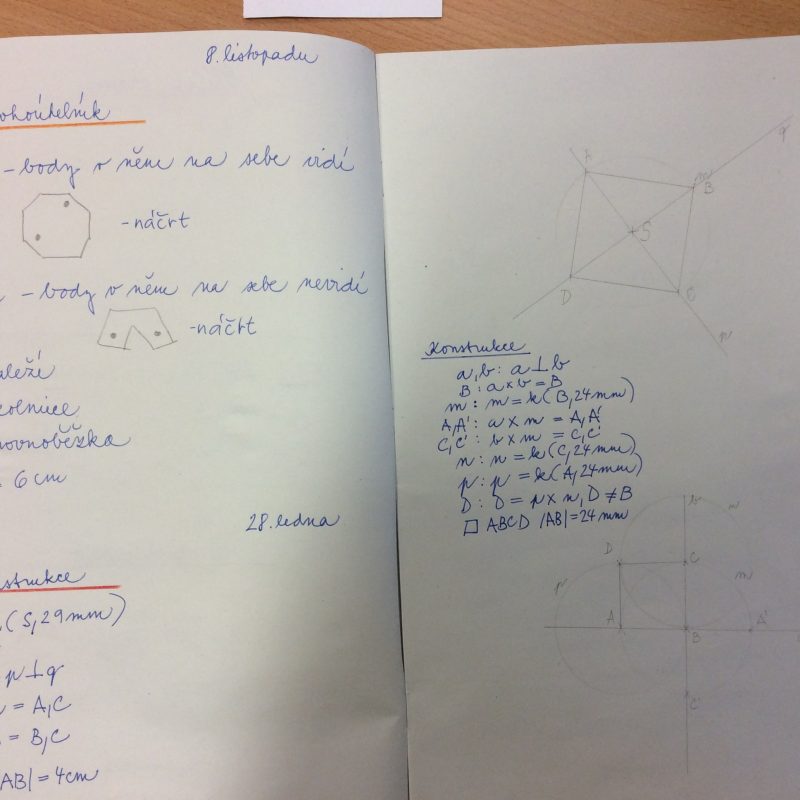 8. listopadu
ohoúhelník
- body v něm na sebe vidí
- náčrt
- body v něm na sebe nevidí
- náčrt
leží
colnice
rovnoběžka
= 6 cm
28. ledna
strukce
(S, 29 mm)
p ⊥ q
= A, C
= B, C
AB| = 4 cm
q
A
m
B
S
D
C
p
Konstrukce
a, b : a ⊥ b
B : a × b = B
m : m = k(B, 24 mm)
A, A' : a × m = A, A'
C, C' : b × m = C, C'
n : n = k(C, 24 mm)
p : p = k(A, 24 mm)
D : D = p × n, D ≠ B
□ ABCD |AB| = 24 mm
b
n
D
C
p
m
A
B
A'
C'